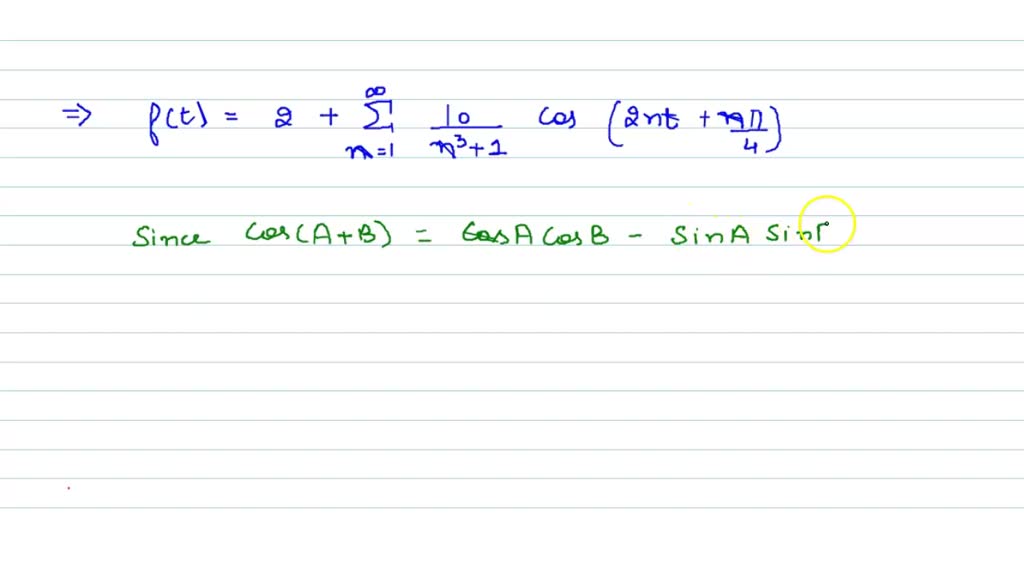 ⇒ f(t) = 2 + ∑_{n=1}^{∞} 10/(n³+1) cos (2nt + nπ/4)
Since Cos(A+B) = CosA CosB - SinA Sin